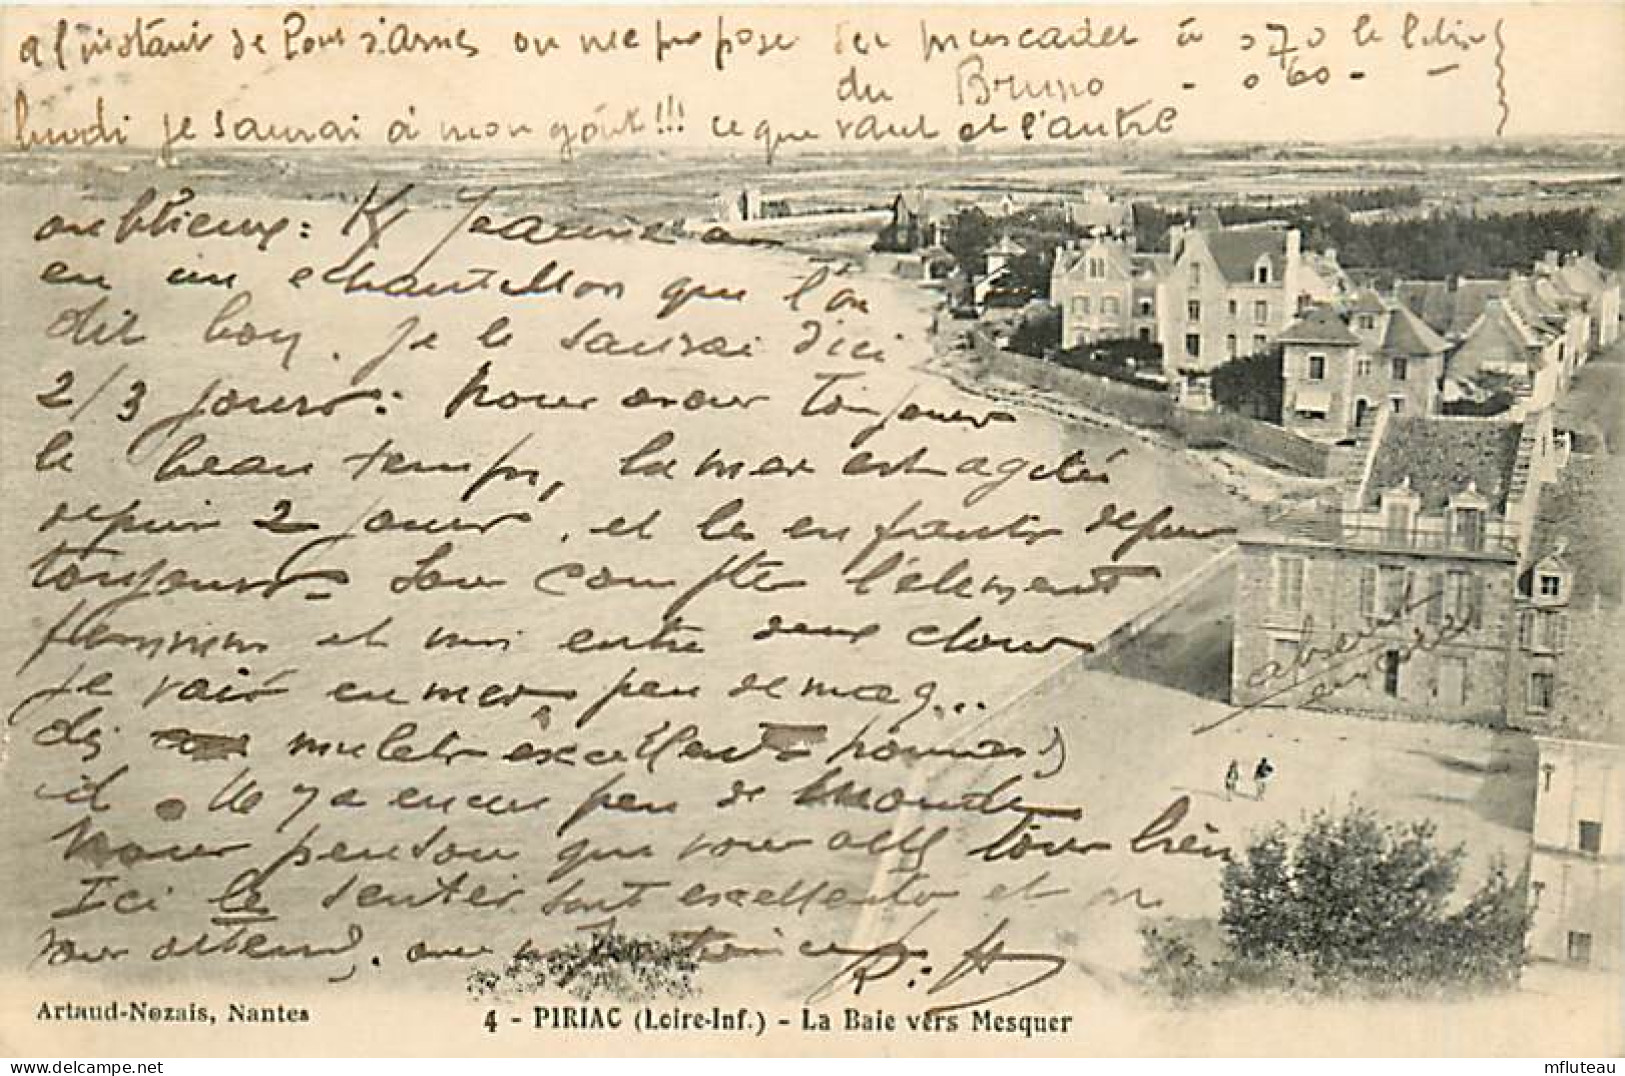 a l'instant de Pont d'Armes on me propose du muscadet à 0 70 le litre
du Bruno - 0 60 - -
lundi je saurai à mon goût!!! ce que vaut et l'autre
en
en un echantillon que l'on
dit bon. Je le saurai d'ici
2/3 jours: Nous avons toujours
le beau temps, la mer est agitée
depuis 2 jours, et les enfants depuis
toujours. Sou compte l'element
feminin et moi entre deux
Je vais en mer, peu de maq...
des mulets excellents
id. Il y a encore peu de monde
Nous pensons que vous allez tous bien
Ici le sentier sont excellents et on
vous attend.
R. H
absent
Artaud-Nozais, Nantes
4 - PIRIAC (Loire-Inf.) - La Baie vers Mesquer
mfluteau